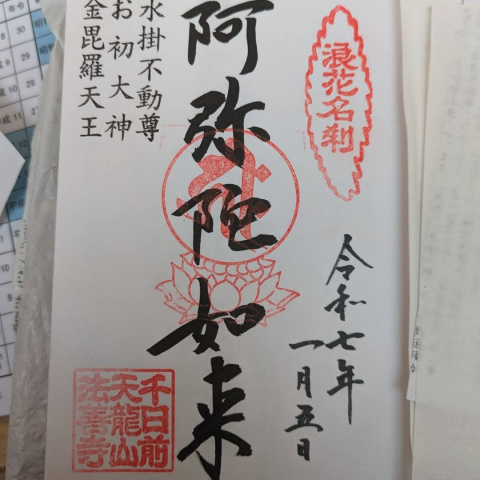 浪花名刹
令和七年
一月五日
阿弥陀如来
水掛不動尊
お初大神
金毘羅天王
千日前
天龍山
法善寺